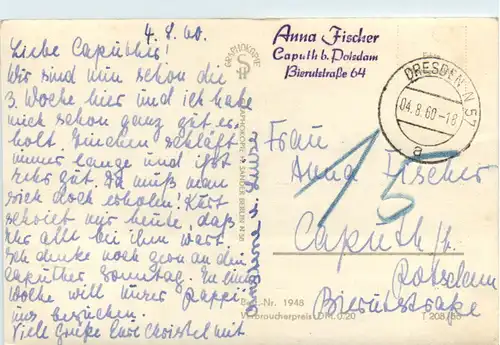 4.8.60.
Liebe Capüther!
Wir sind nun schon die
3. Woche hier und ich habe
mich schon ganz gut er-
holt. Linchen schläft
immer lange und ißt
sehr gut. Da muß man
sich doch erholen! Kurt
schreibt mir heute, daß
Ihr alle bei ihm wart.
Ich denke noch gern an den
Caputher Sonntag. In einer
Woche will unser Pappi
uns besuchen.
Viele Grüße Eure Christel mit
GRAPHOKOPIE
H. SANDER BERLIN N 58
Anna Fischer
Caputh b. Potsdam
Bierutstraße 64
DRESDEN N 57
04.8.60-18
a
15
Frau
Anna Fischer
Caputh b.
Potsdam
Bierutstraße
Best.-Nr. 1948
Verbraucherpreis DM 0,20
T 208/60